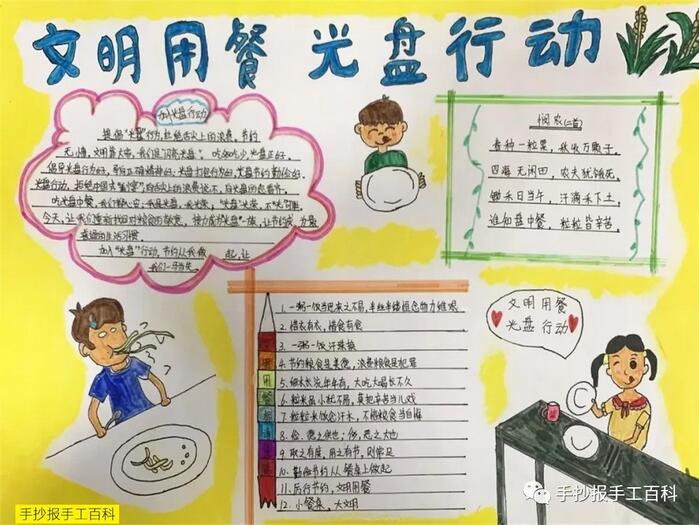 文明用餐 光盘行动
加入光盘行动
提倡"光盘"行为,拒绝舌尖上的浪费。节约
无小事,文明靠大家,我们是"闪亮光盘"。吃多吃少,光盘正好。
今天,让我们重新找回对粮食的敬意,
养成的生活习惯。
加入"光盘"行动,节约从我做起,让
悯农(二首)
春种一粒粟,秋收万颗子
四海无闲田,农夫犹饿死
锄禾日当午,汗滴禾下土
谁知盘中餐,粒粒皆辛苦
1.一粥一饭当思来之不易,半丝半缕恒念物力维艰
2.惜衣有衣,惜食有食
3.一粥一饭汗珠换
4.节约粮食是美德,浪费粮食是犯罪
5.细水长流年年有,大吃大喝长不久
6.粒米虽小犹不易,莫把辛苦当儿戏
7.粒粒米饭念汗水,不惜粮食当自悔
8.俭,德之共也;侈,恶之大也
9.取之有度,用之有节,则常足
10.勤俭节约从餐桌上做起
11.厉行节约,文明用餐
12.小餐桌,大文明
文明用餐
光盘行动
手抄报手工百科
手抄报手工百科